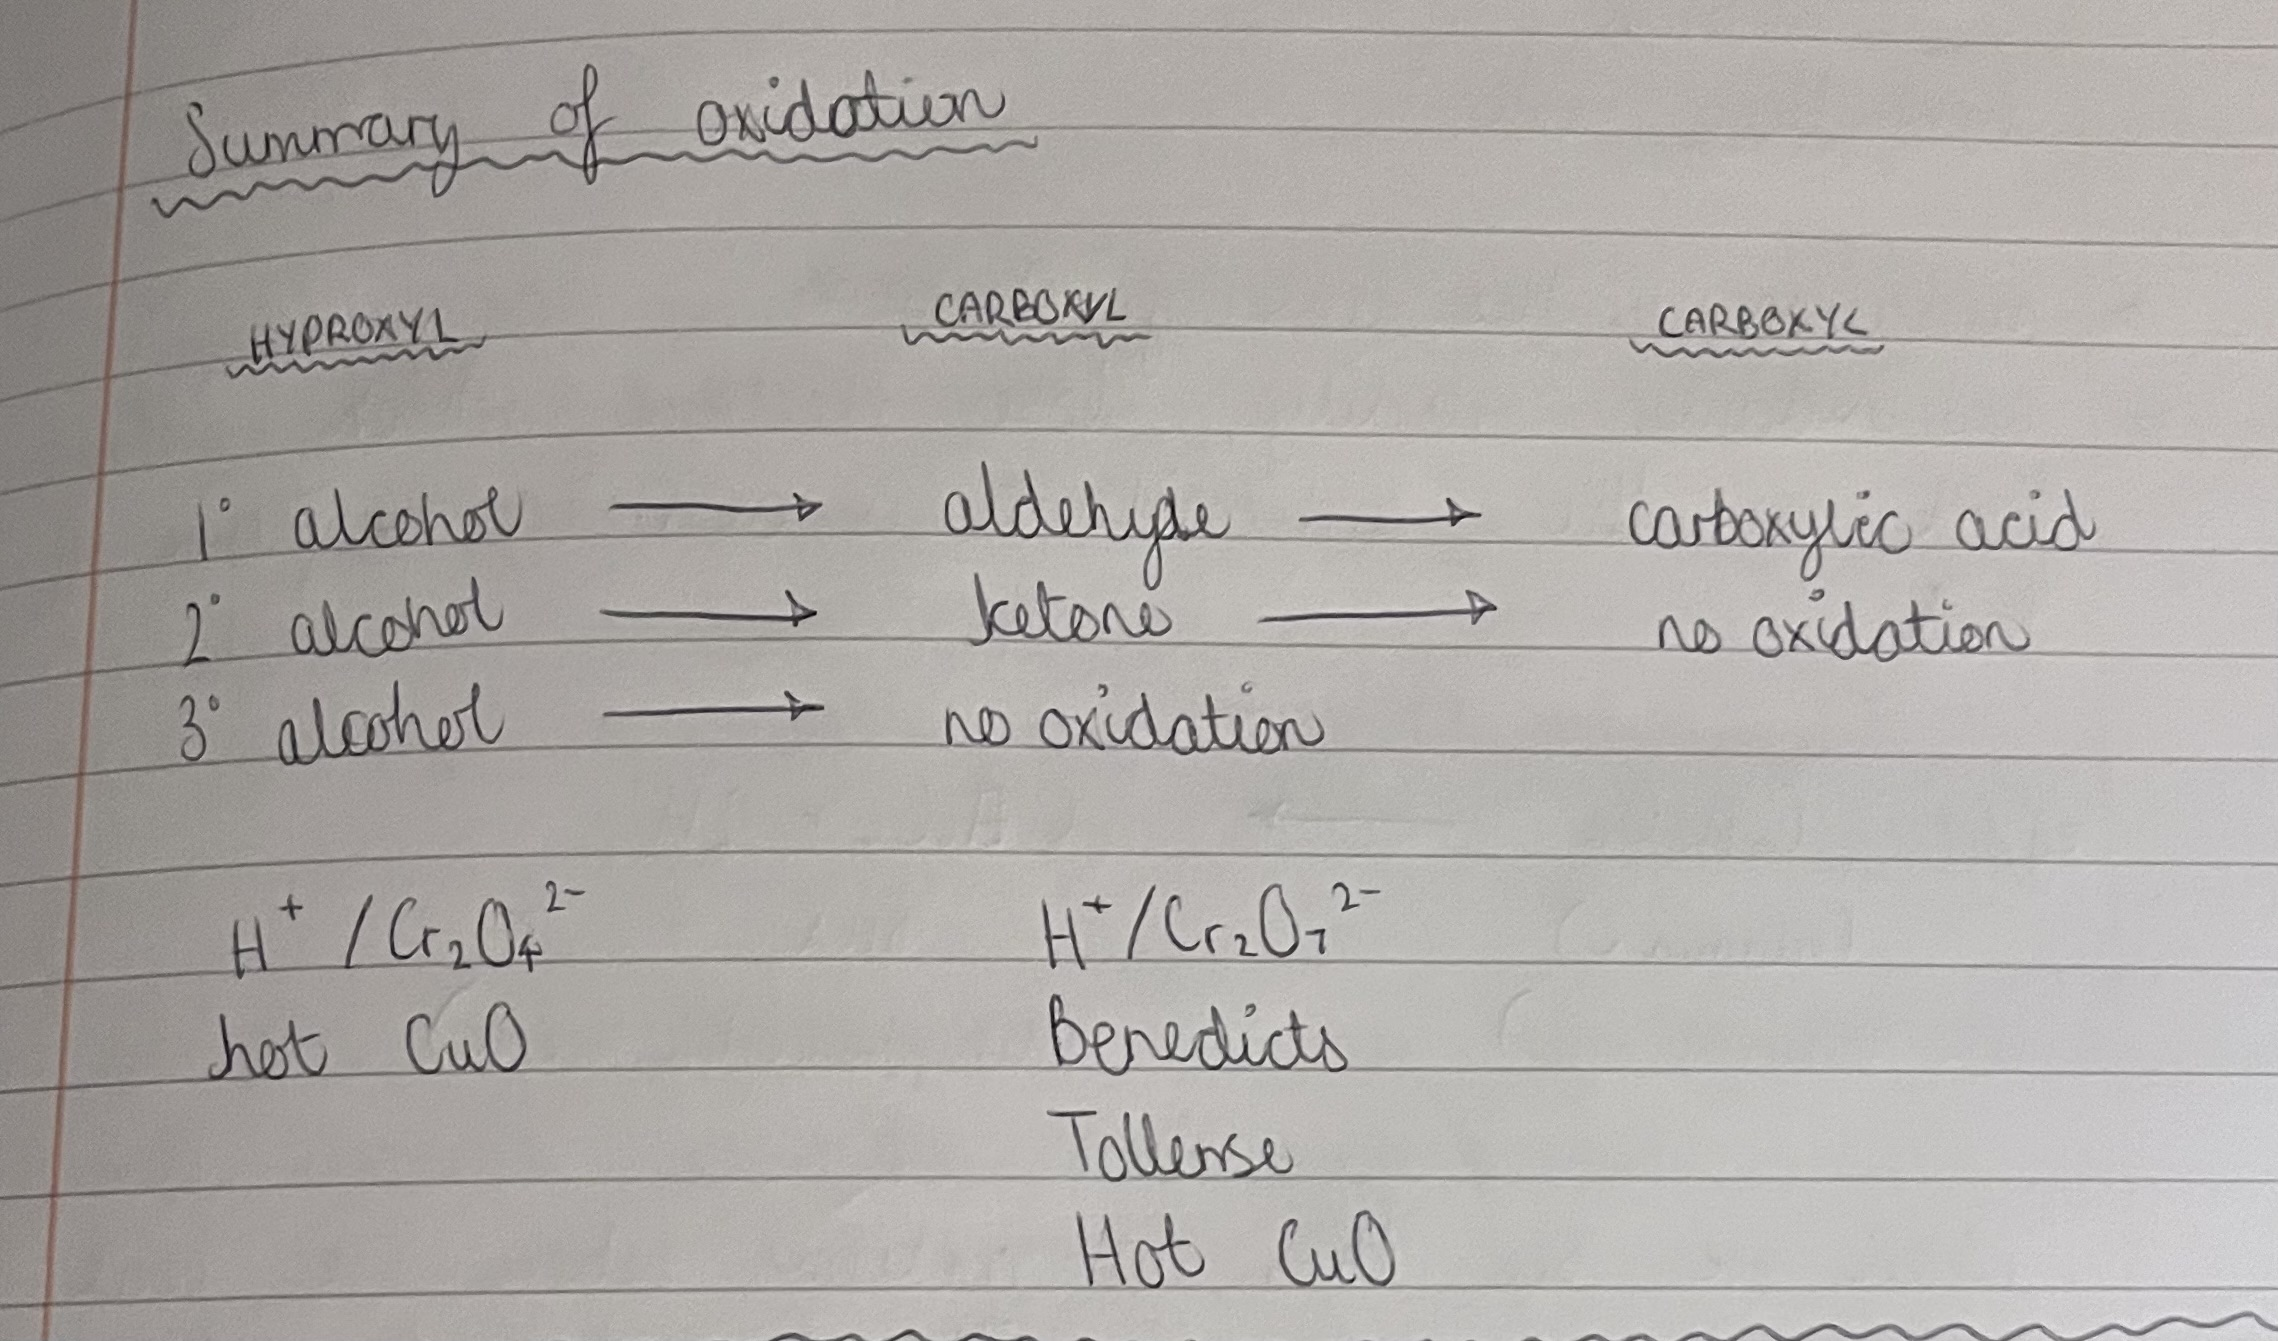 Summary of oxidation
HYDROXYL CARBOXYL CARBOXYL
1° alcohol → aldehyde → carboxylic acid
2° alcohol → ketone → no oxidation
3° alcohol → no oxidation
H⁺ / Cr₂O₄²⁻ H⁺/Cr₂O₇²⁻
hot CuO Benedicts
Tollense
Hot CuO